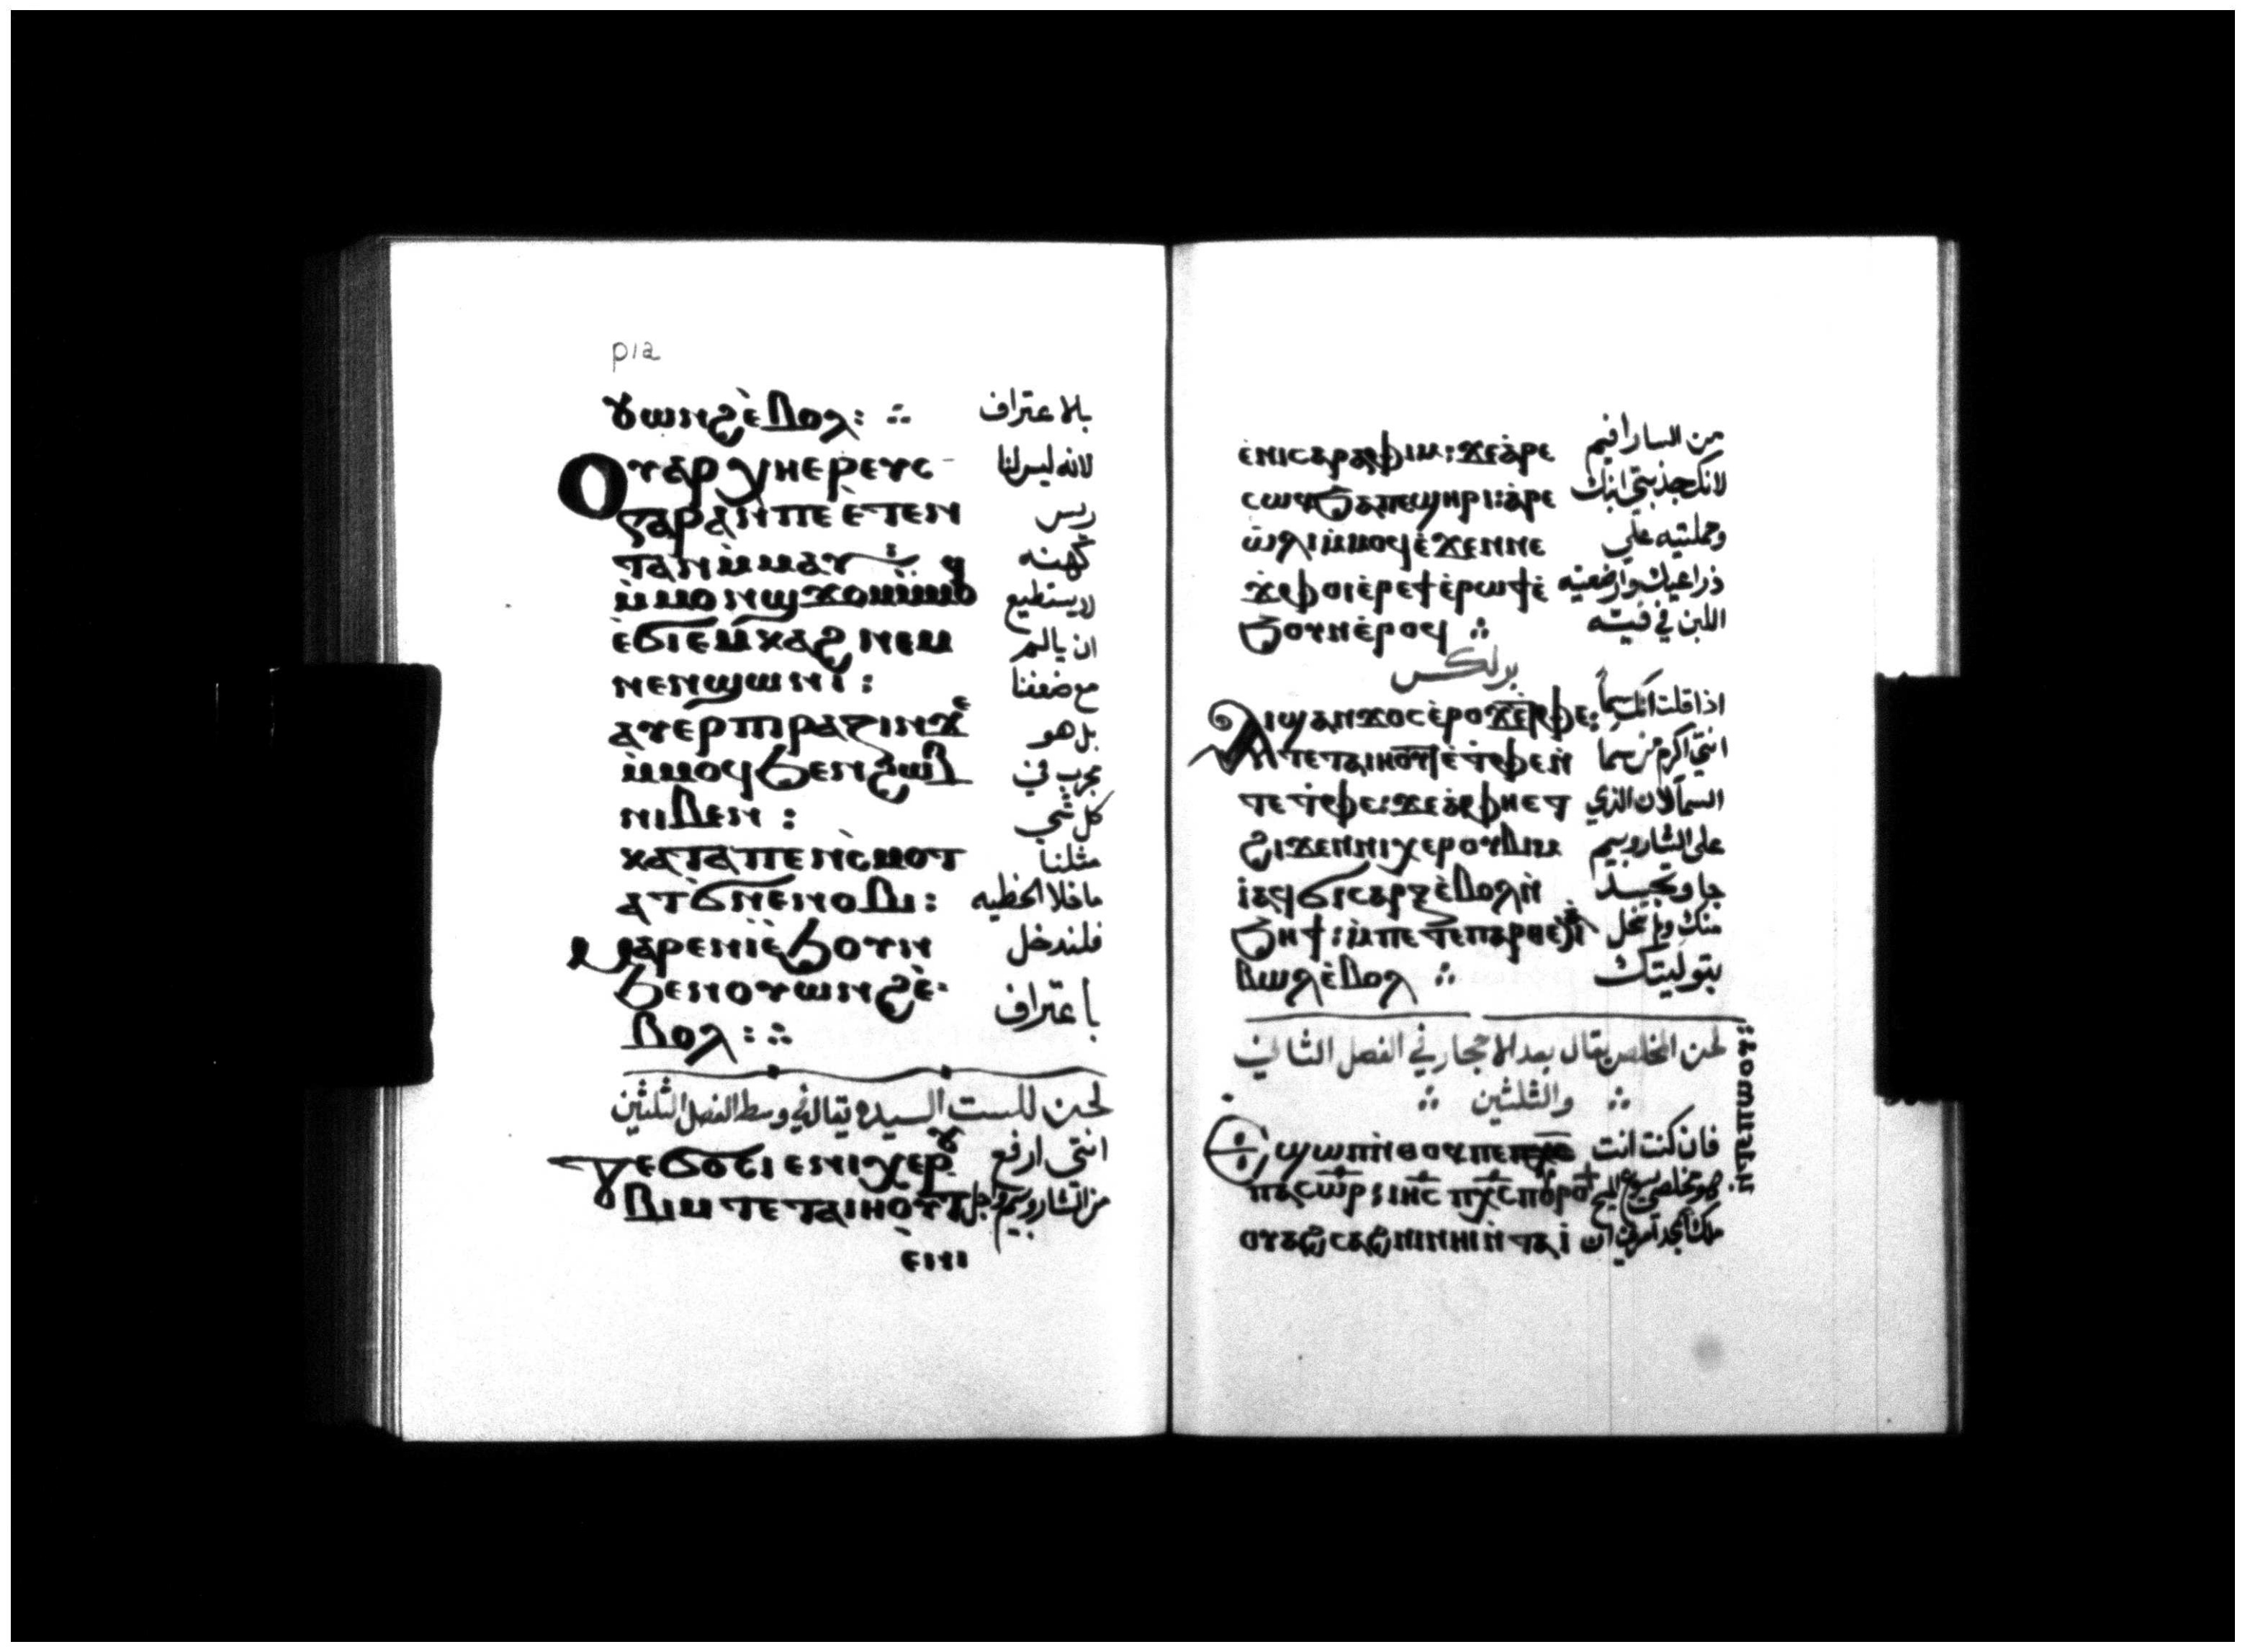 ⲣⲓⲁ
ⲟⲩⲱⲛϩⲉ̀ⲃⲟⲗ: بالاعتراف
ⲟⲩⲁⲣⲭⲏⲉⲣⲉⲩⲥ لانه ليس لنا
ⲅⲁⲣⲁⲛⲡⲉ ⲉ̀ⲧⲉⲛ ريس
ⲧⲁⲛⲙ̀ⲙⲁⲩ كهنه
ⲙ̀ⲙⲟⲛϣϫⲟⲙⲙ̀ⲙⲟ لايستطيع
ⲉ̀ϭⲓⲉⲙⲕⲁϩ ⲛⲉⲙ ان يالم
ⲛⲉⲛϣⲱⲛⲓ: مع ضعفنا
ⲁⲩⲉⲣⲡⲓⲣⲁⲍⲓⲛϫⲉ بل هو
ⲙ̀ⲙⲟϥϧⲉⲛϩⲱⲃ مجرب في
ⲛⲓⲃⲉⲛ: كل شي
ⲕⲁⲧⲁⲡⲉⲛⲥ̀ⲙⲟⲧ مثلنا
ⲁⲧϭⲛⲉⲛⲟⲃⲓ: ماخلا الخطيه
ⲙⲁⲣⲉⲛⲓⲉ̀ϧⲟⲩⲛ فلندخل
ϧⲉⲛⲟⲩⲱⲛϩⲉ̀ باعتراف
ⲃⲟⲗ:
لحن للست السيده يقال في وسط الفصل الثلثين
ⲧⲉϭⲟⲥⲓ ⲉⲛⲓⲭⲉⲣⲟⲩ انتي ارفع
ⲃⲓⲙ ⲧⲉⲧⲁⲓⲏⲟⲩⲧ من الشاروبيم واجل
ⲉⲛⲓ
ⲉ̀ⲛⲓⲥⲉⲣⲁⲫⲓⲙ: ϫⲉⲁ̀ⲣⲉ من السارافيم
ⲥⲱⲕϧⲁⲡⲉϣⲏⲣⲓ: ⲁ̀ⲣⲉ لانك جذبتي ابنك
ⲱ̀ⲗⲓⲙ̀ⲙⲟϥⲉ̀ϫⲉⲛⲛⲉ وحملتيه علي
ϫⲫⲟⲓⲉ̀ⲣⲉϯⲉ̀ⲣⲱϯⲉ̀ ذراعيك وارضعتيه
ϧⲟⲩⲛⲉ̀ⲣⲟϥ اللبن في فيه
برلكس
ⲁⲓϣⲁⲛϫⲟⲥⲉ̀ⲣⲟϫⲉⲧ̀ⲫⲉ: اذا قلت انك سما
ⲛ̀ⲧⲉⲧⲁⲓⲏⲟⲩⲧⲉ̀ⲧ̀ⲫⲉⲛ̀ انتي اكرم من سما
ⲧⲉⲧ̀ⲫⲉ: ϫⲉⲁ̀ⲫⲏⲉⲧ السما لان الذي
ϩⲓϫⲉⲛⲛⲓⲭⲉⲣⲟⲩⲃⲓⲙ على الشاروبيم
ⲓ̀ⲁϥϭⲓⲥⲁⲣⲝⲉ̀ⲃⲟⲗⲛ̀ جا وتجسد
ϧⲏϯ: ⲙ̀ⲡⲉⲧⲉⲡⲁⲣⲑⲉⲛⲓ منك ولم تحل
ⲃⲱⲗⲉ̀ⲃⲟⲗ بتوليتك
لحن المخلص يقال بعد الاحجار في الفصل الثاني
والثلثين
ϣⲱⲡⲛ̀ⲑⲟϥⲡⲉ فان كنت انت
ⲡⲁⲥⲱⲣ ⲓⲏⲥ ⲡⲭⲥ ⲡⲟⲩⲣⲟ هو مخلصي يسوع المسيح
ⲟⲩⲁϩⲥⲁϩⲛⲓⲛⲏⲓⲛ̀ⲧⲁⲓ̀